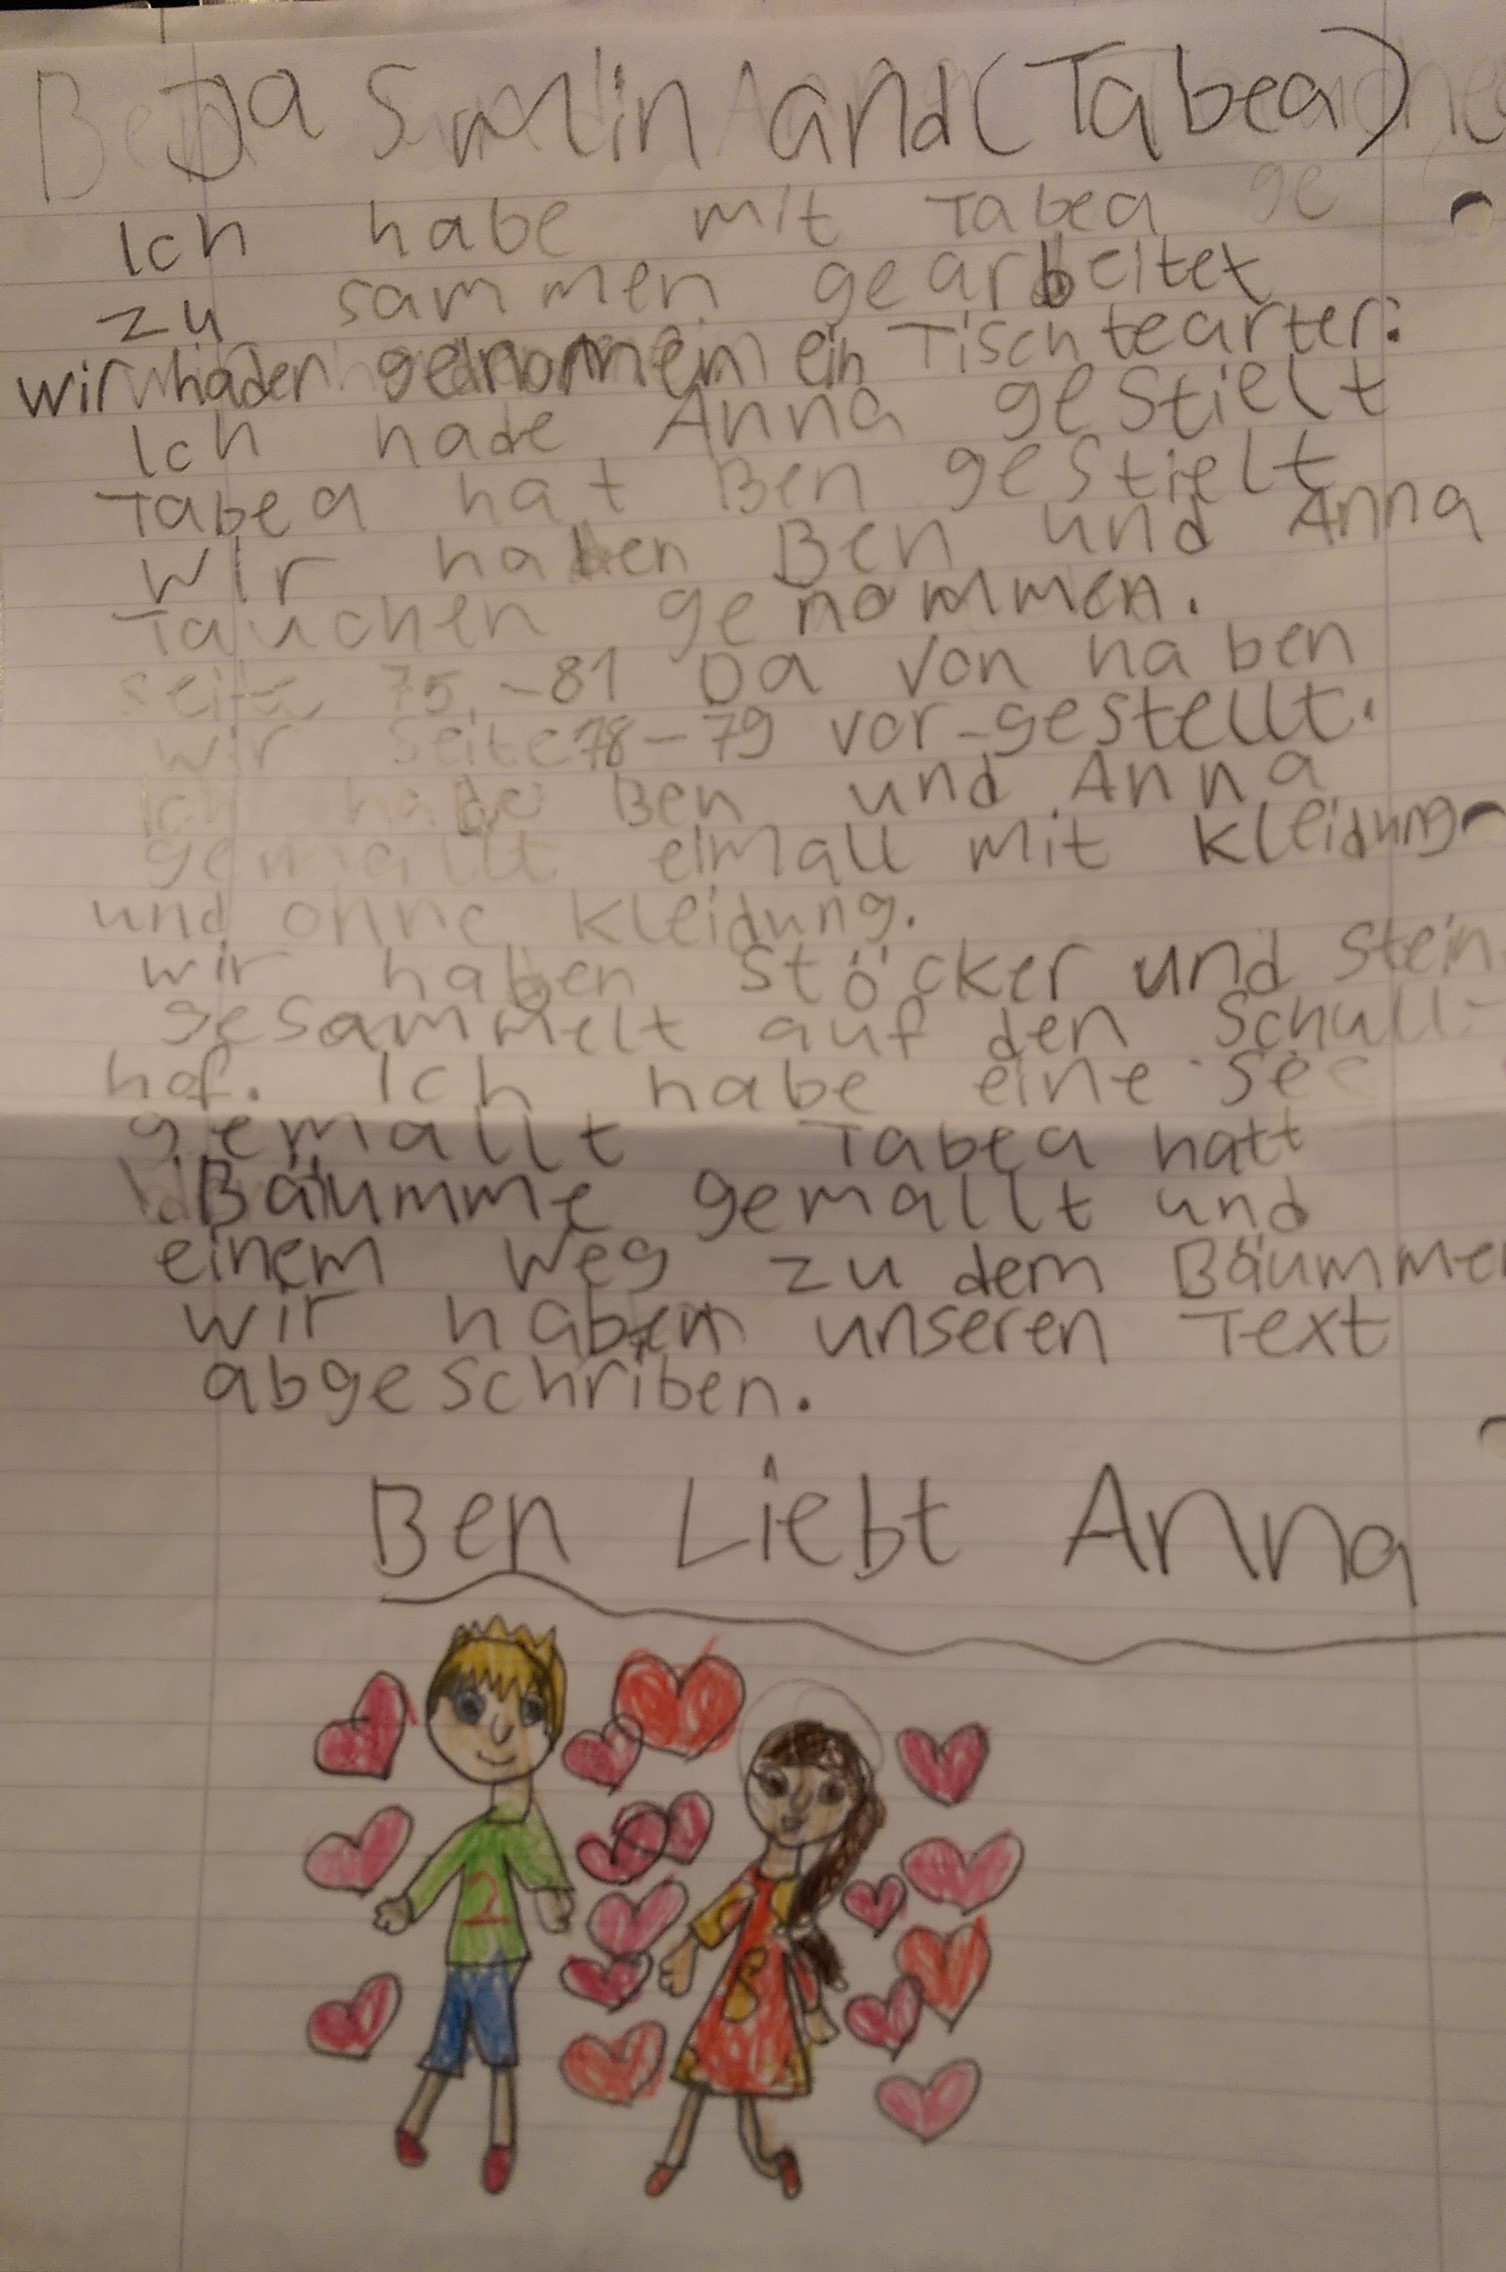 Jasmin and (Tabea)
Ich habe mit Tabea
zu sammen gearbeitet
wir haben genommen ein Tischtearter:
Ich habe Anna gestielt
Tabea hat Ben gestielt
wir haben Ben und Anna
Tauchen genommen.
seite 75,-81 Da von haben
wir seite 78-79 vor-gestellt.
Ich habe Ben und Anna
gemallt eimall mit kleidung
und ohne kleidung.
wir haben stöcker und stein
gesammelt auf den Schull-
hof. Ich habe eine See
gemallt Tabea hatt
Bäumme gemallt und
einem weg zu dem Bäummen
wir haben unseren Text
abgeschriben.
Ben Liebt Anna
2